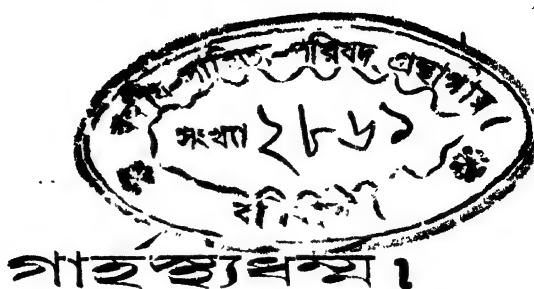 বঙ্গীয়-সাহিত্য-পরিষদ্ গ্রন্থাগার
সংখ্যা ২৮৬১
গার্হস্থ্যধর্ম্ম।